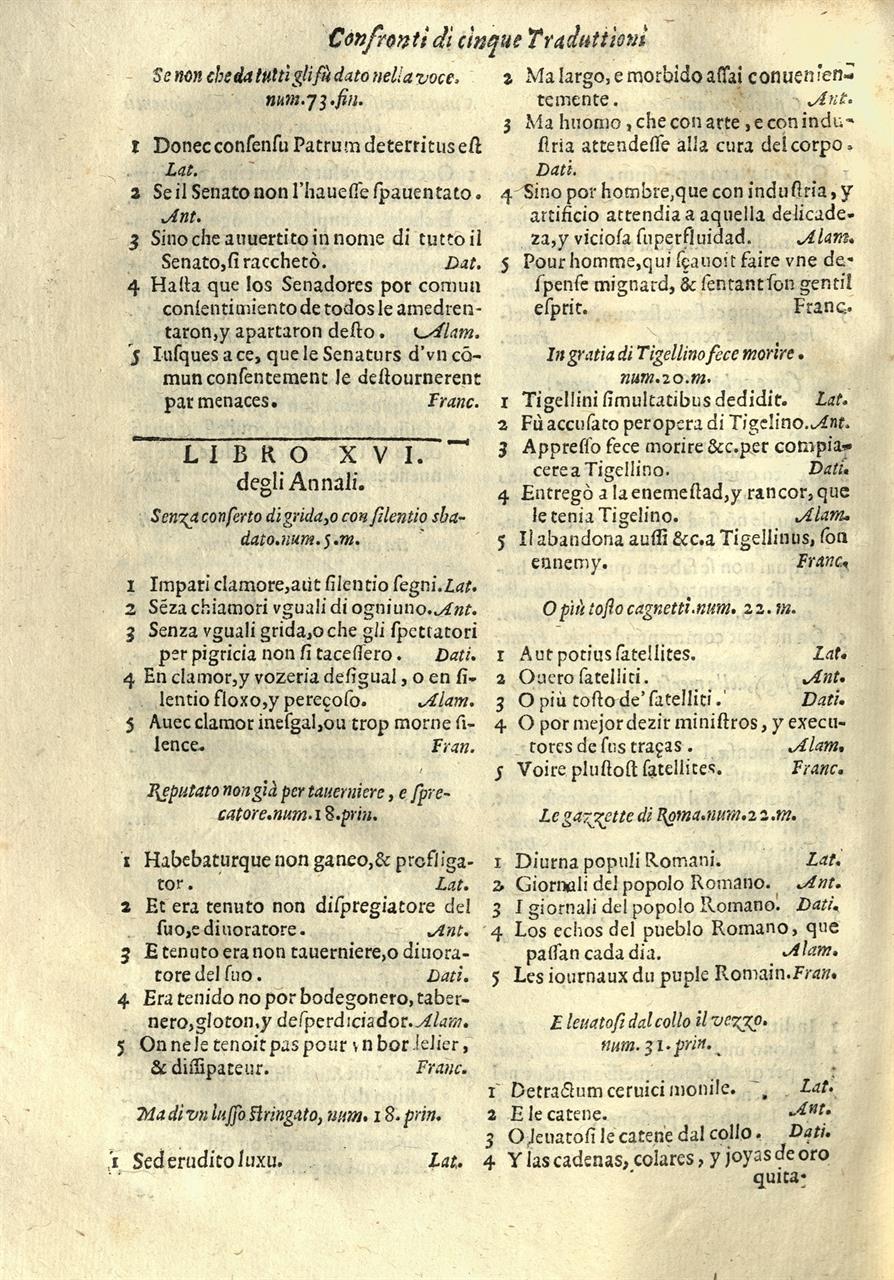 Confronti di cinque Traduttioni
Se non che da tutti gli fù dato nella voce.
num.73.fin.
1 Donec consensu Patrum deterritus est
Lat.
2 Se il Senato non l'hauesse spauentato.
Ant.
3 Sino che auuertito in nome di tutto il
Senato, si racchetò. Dat.
4 Hasta que los Senadores por comun
consentimiento de todos le amedren-
taron, y apartaron desto. Alam.
5 Iusques a ce, que le Senaturs d'vn cō-
mun consentement le destournerent
par menaces. Franc.
LIBRO XVI.
degli Annali.
Senza conserto di grida, o con silentio sba-
dato.num.5.m.
1 Impari clamore, aut silentio segni. Lat.
2 Sēza chiamori vguali di ogniuno. Ant.
3 Senza vguali grida, o che gli spettatori
per pigricia non si tacessero. Dati.
4 En clamor, y vozeria desigual, o en si-
lentio floxo, y pereçoso. Alam.
5 Auec clamor inesgal, ou trop morne si-
lence. Fran.
Reputato non già per tauerniere, e spre-
catore.num.18.prin.
1 Habebaturque non ganeo, & profliga-
tor. Lat.
2 Et era tenuto non dispregiatore del
suo, e diuoratore. Ant.
3 E tenuto era non tauerniere, o diuora-
tore del suo. Dati.
4 Era tenido no por bodegonero, taber-
nero, gloton, y desperdiciador. Alam.
5 On ne le tenoit pas pour vn bordelier,
& dissipateur. Franc.
Ma di vn lusso stringato, num. 18. prin.
1 Sed erudito luxu. Lat.
2 Ma largo, e morbido assai conuenien-
temente. Ant.
3 Ma huomo, che con arte, e con indu-
stria attendesse alla cura del corpo.
Dati.
4 Sino por hombre, que con industria, y
artificio attendia a aquella delicade-
za, y viciosa superfluidad. Alam.
5 Pour homme, qui sçauoit faire vne de-
spense mignard, & sentant son gentil
esprit. Franc.
In gratia di Tigellino fece morire.
num.20.m.
1 Tigellini simultatibus dedidit. Lat.
2 Fù accusato per opera di Tigelino. Ant.
3 Appresso fece morire &c. per compia-
cere a Tigellino. Dati.
4 Entregò a la enemestad, y rancor, que
le tenia Tigelino. Alam.
5 Il abandona aussi &c. a Tigellinus, son
ennemy. Franc.
O più tosto cagnetti.num. 22. m.
1 Aut potius satellites. Lat.
2 Ouero satelliti. Ant.
3 O più tosto de' satelliti. Dati.
4 O por mejor dezir ministros, y execu-
tores de sus traças. Alam.
5 Voire plustost satellites. Franc.
Le gazzette di Roma.num.22.m.
1 Diurna populi Romani. Lat.
2 Giornali del popolo Romano. Ant.
3 I giornali del popolo Romano. Dati.
4 Los echos del pueblo Romano, que
passan cada dia. Alam.
5 Les iournaux du puple Romain. Fran.
E leuatosi dal collo il vezzo.
num. 31. prin.
1 Detractum ceruici monile. Lat.
2 E le catene. Ant.
3 O leuatosi le catene dal collo. Dati.
4 Y las cadenas, colares, y joyas de oro
quita-